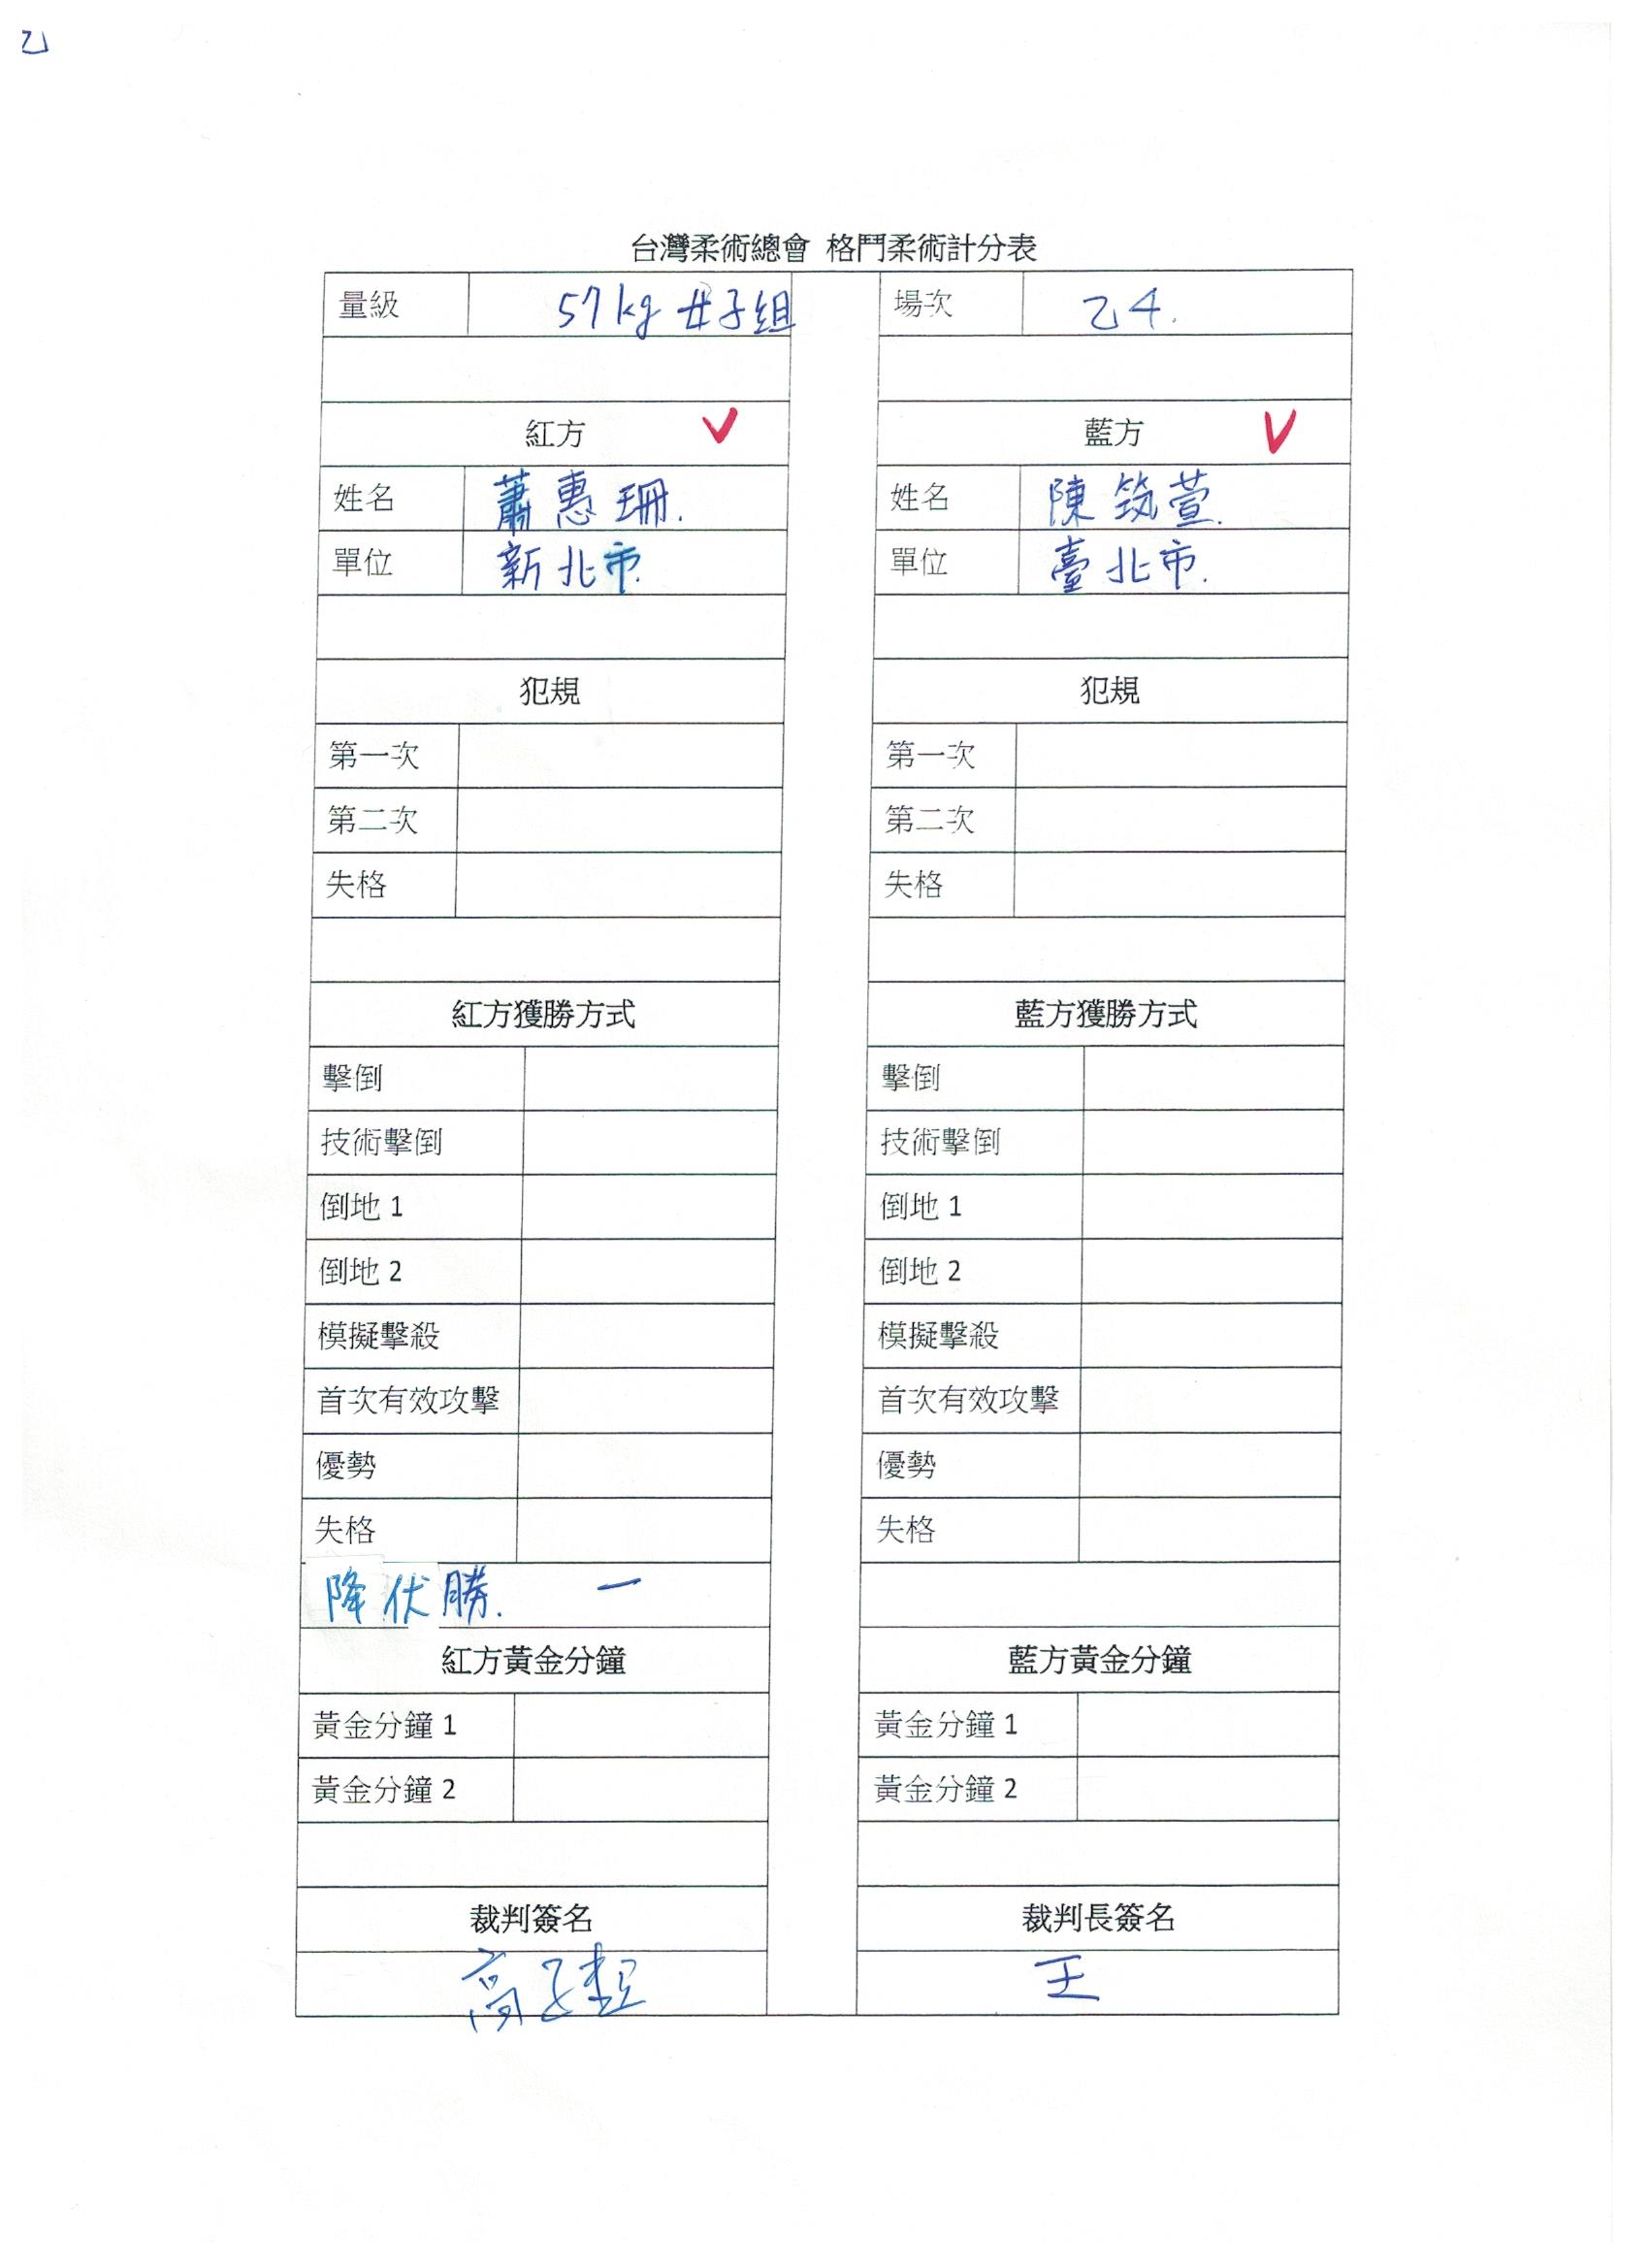 乙
台灣柔術總會 格鬥柔術計分表
量級 57kg 女子組 場次 乙4.
紅方 V 藍方 V
姓名 蕭惠珊. 姓名 陳筑萱.
單位 新北市. 單位 臺北市.
犯規 犯規
第一次 第一次
第二次 第二次
失格 失格
紅方獲勝方式 藍方獲勝方式
擊倒 擊倒
技術擊倒 技術擊倒
倒地 1 倒地 1
倒地 2 倒地 2
模擬擊殺 模擬擊殺
首次有效攻擊 首次有效攻擊
優勢 優勢
失格 失格
降伏勝. 一
紅方黃金分鐘 藍方黃金分鐘
黃金分鐘 1 黃金分鐘 1
黃金分鐘 2 黃金分鐘 2
裁判簽名 裁判長簽名
高子 王